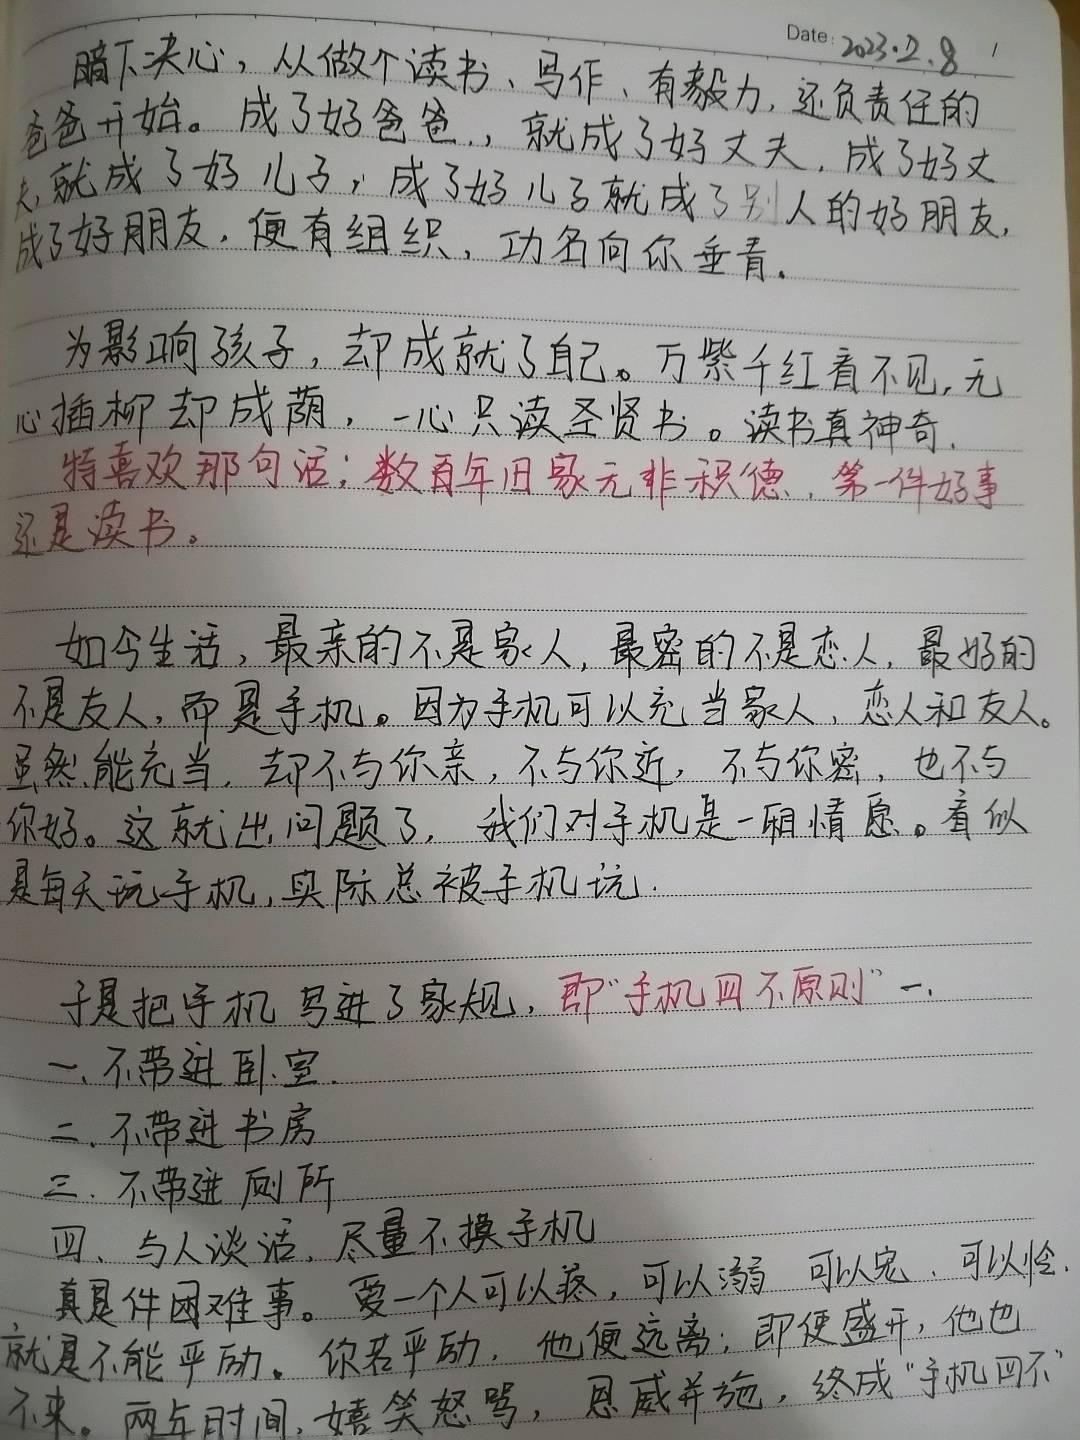 Date: 2023.2.8
暗下决心，从做个读书、写作、有毅力，还负责任的
爸爸开始。成了好爸爸，就成了好丈夫，成了好丈
夫，就成了好儿子，成了好儿子就成了别人的好朋友，
成了好朋友，便有组织，功名向你垂青。
为影响孩子，却成就了自己。万紫千红看不见，无
心插柳却成荫，一心只读圣贤书。读书真神奇，
特喜欢那句话：数百年旧家无非积德，第一件好事
还是读书。
如今生活，最亲的不是家人，最密的不是恋人，最好的
不是友人，而是手机。因为手机可以充当家人、恋人和友人。
虽然能充当，却不与你亲，不与你近，不与你密，也不与
你好。这就出问题了，我们对手机是一厢情愿。看似
是每天玩手机，实际总被手机玩．
于是把手机写进了家规，即“手机四不原则”一．
一、不带进卧室．
二、不带进书房
三、不带进厕所
四、与人谈话，尽量不摸手机
真是件困难事。爱一个人可以疼，可以溺 可以宠、可以怜，
就是不能平励。你若平励，他便远离；即使盛开，他也
不来。两年时间，嬉笑怒骂，恩威并施，终成“手机四不”